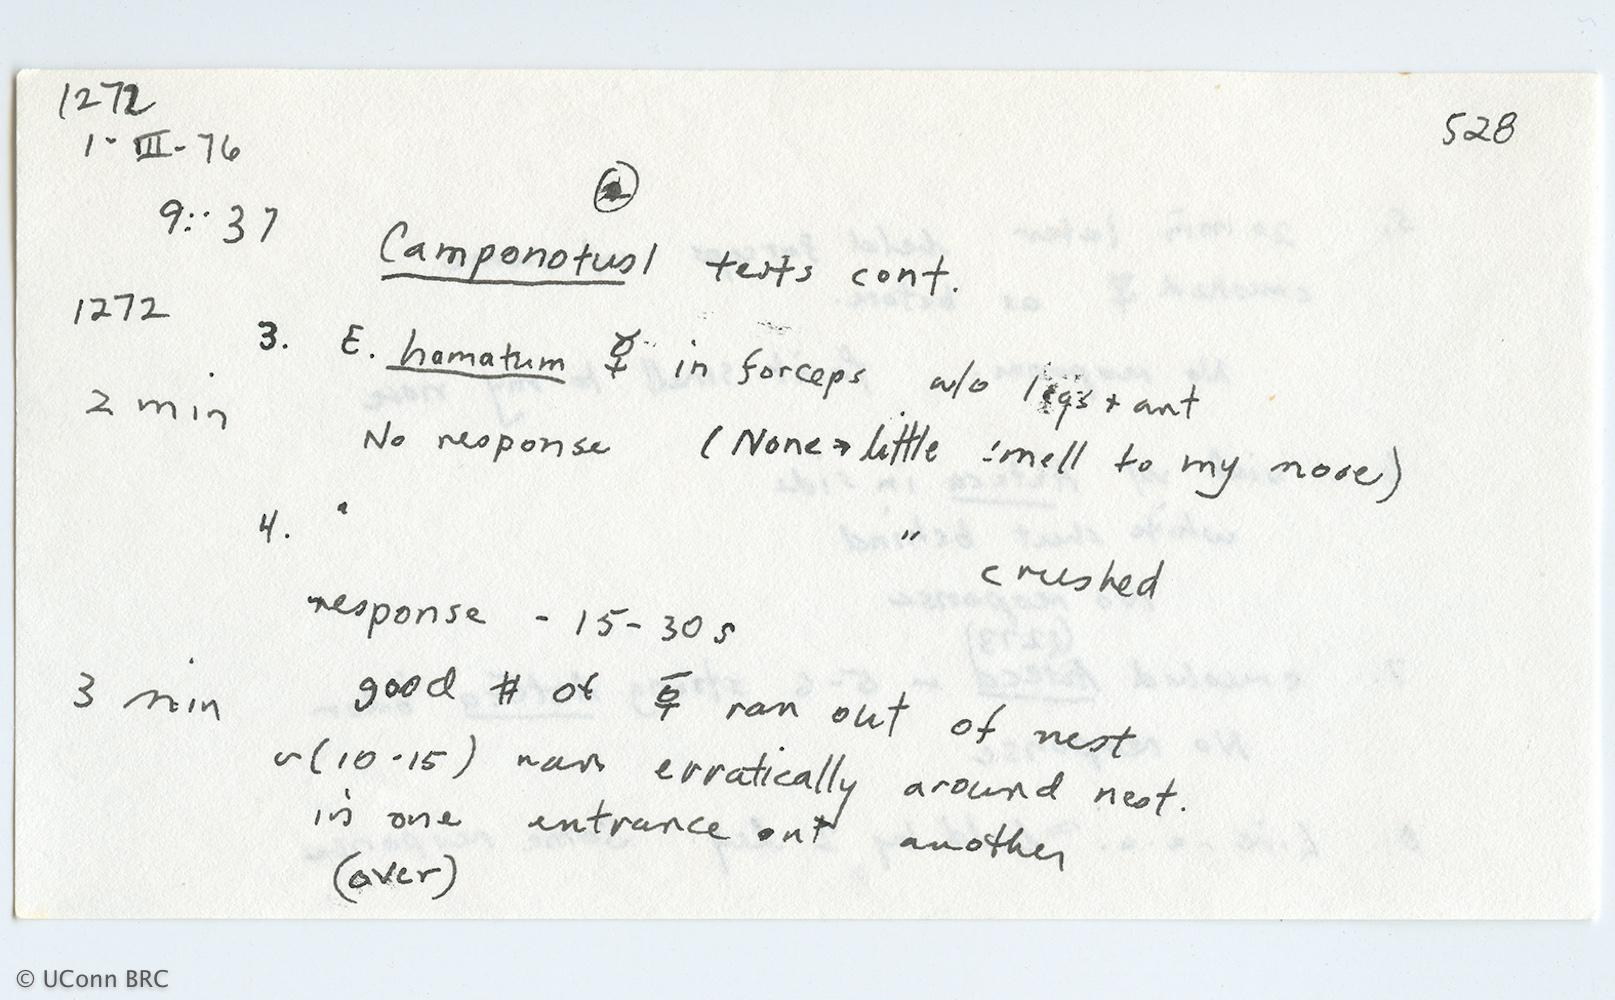 1272
1-III-76
528
9::37
Camponotus tests cont.
1272
3. E. hamatum ☿ in forceps w/o legs + ant
2 min
No response (None → little smell to my nose)
4. " "
crushed
response - 15-30 s
3 min
good # of ☿ ran out of nest
~(10-15) ran erratically around nest.
in one entrance out another
(over)
© UConn BRC